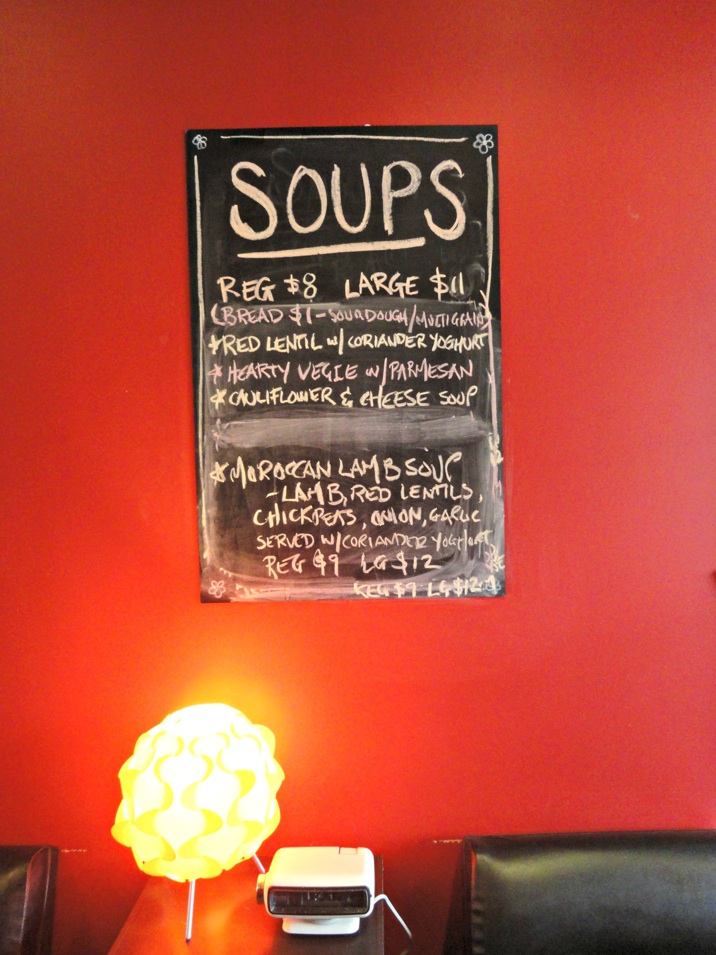 SOUPS
REG $8 LARGE $11
(BREAD $1-SOURDOUGH/MULTIGRAIN)
*RED LENTIL W/CORIANDER YOGHURT
*HEARTY VEGIE W/PARMESAN
*CAULIFLOWER & CHEESE SOUP
*MOROCCAN LAMB SOUP
-LAMB, RED LENTILS,
CHICKPEAS, ONION, GARLIC
SERVED W/CORIANDER YOGHURT
REG $9 LG $12
REG $9 LG $12